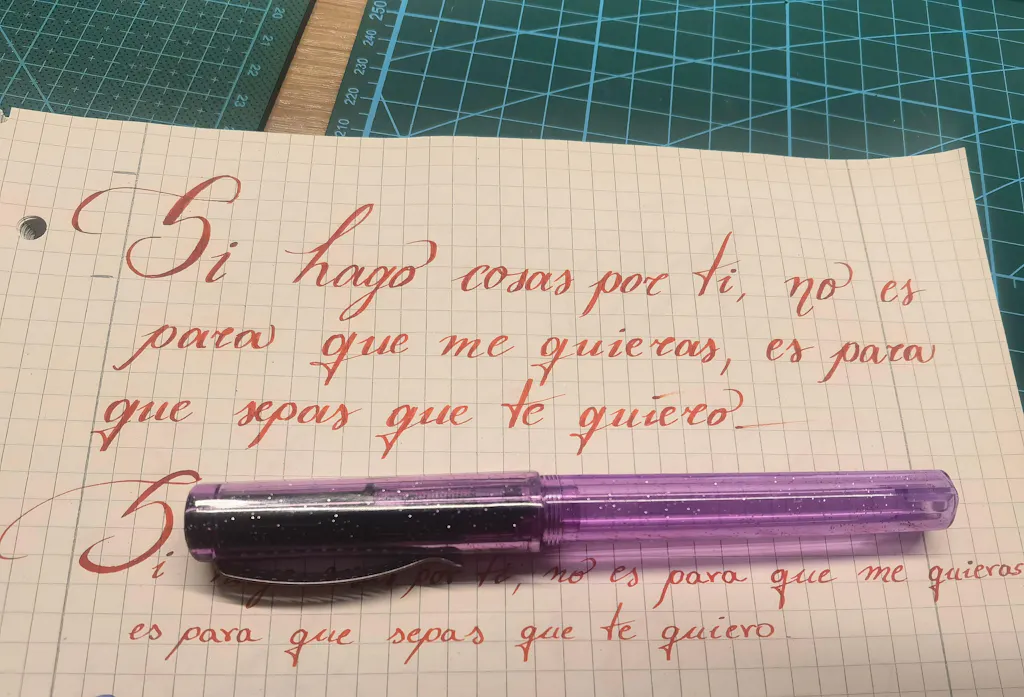 20
21
22
23
250
240
230
220
210
Si hago cosas por ti, no es
para que me quieras, es para
que sepas que te quiero
Si por ti, no es para que me quieras
es para que sepas que te quiero